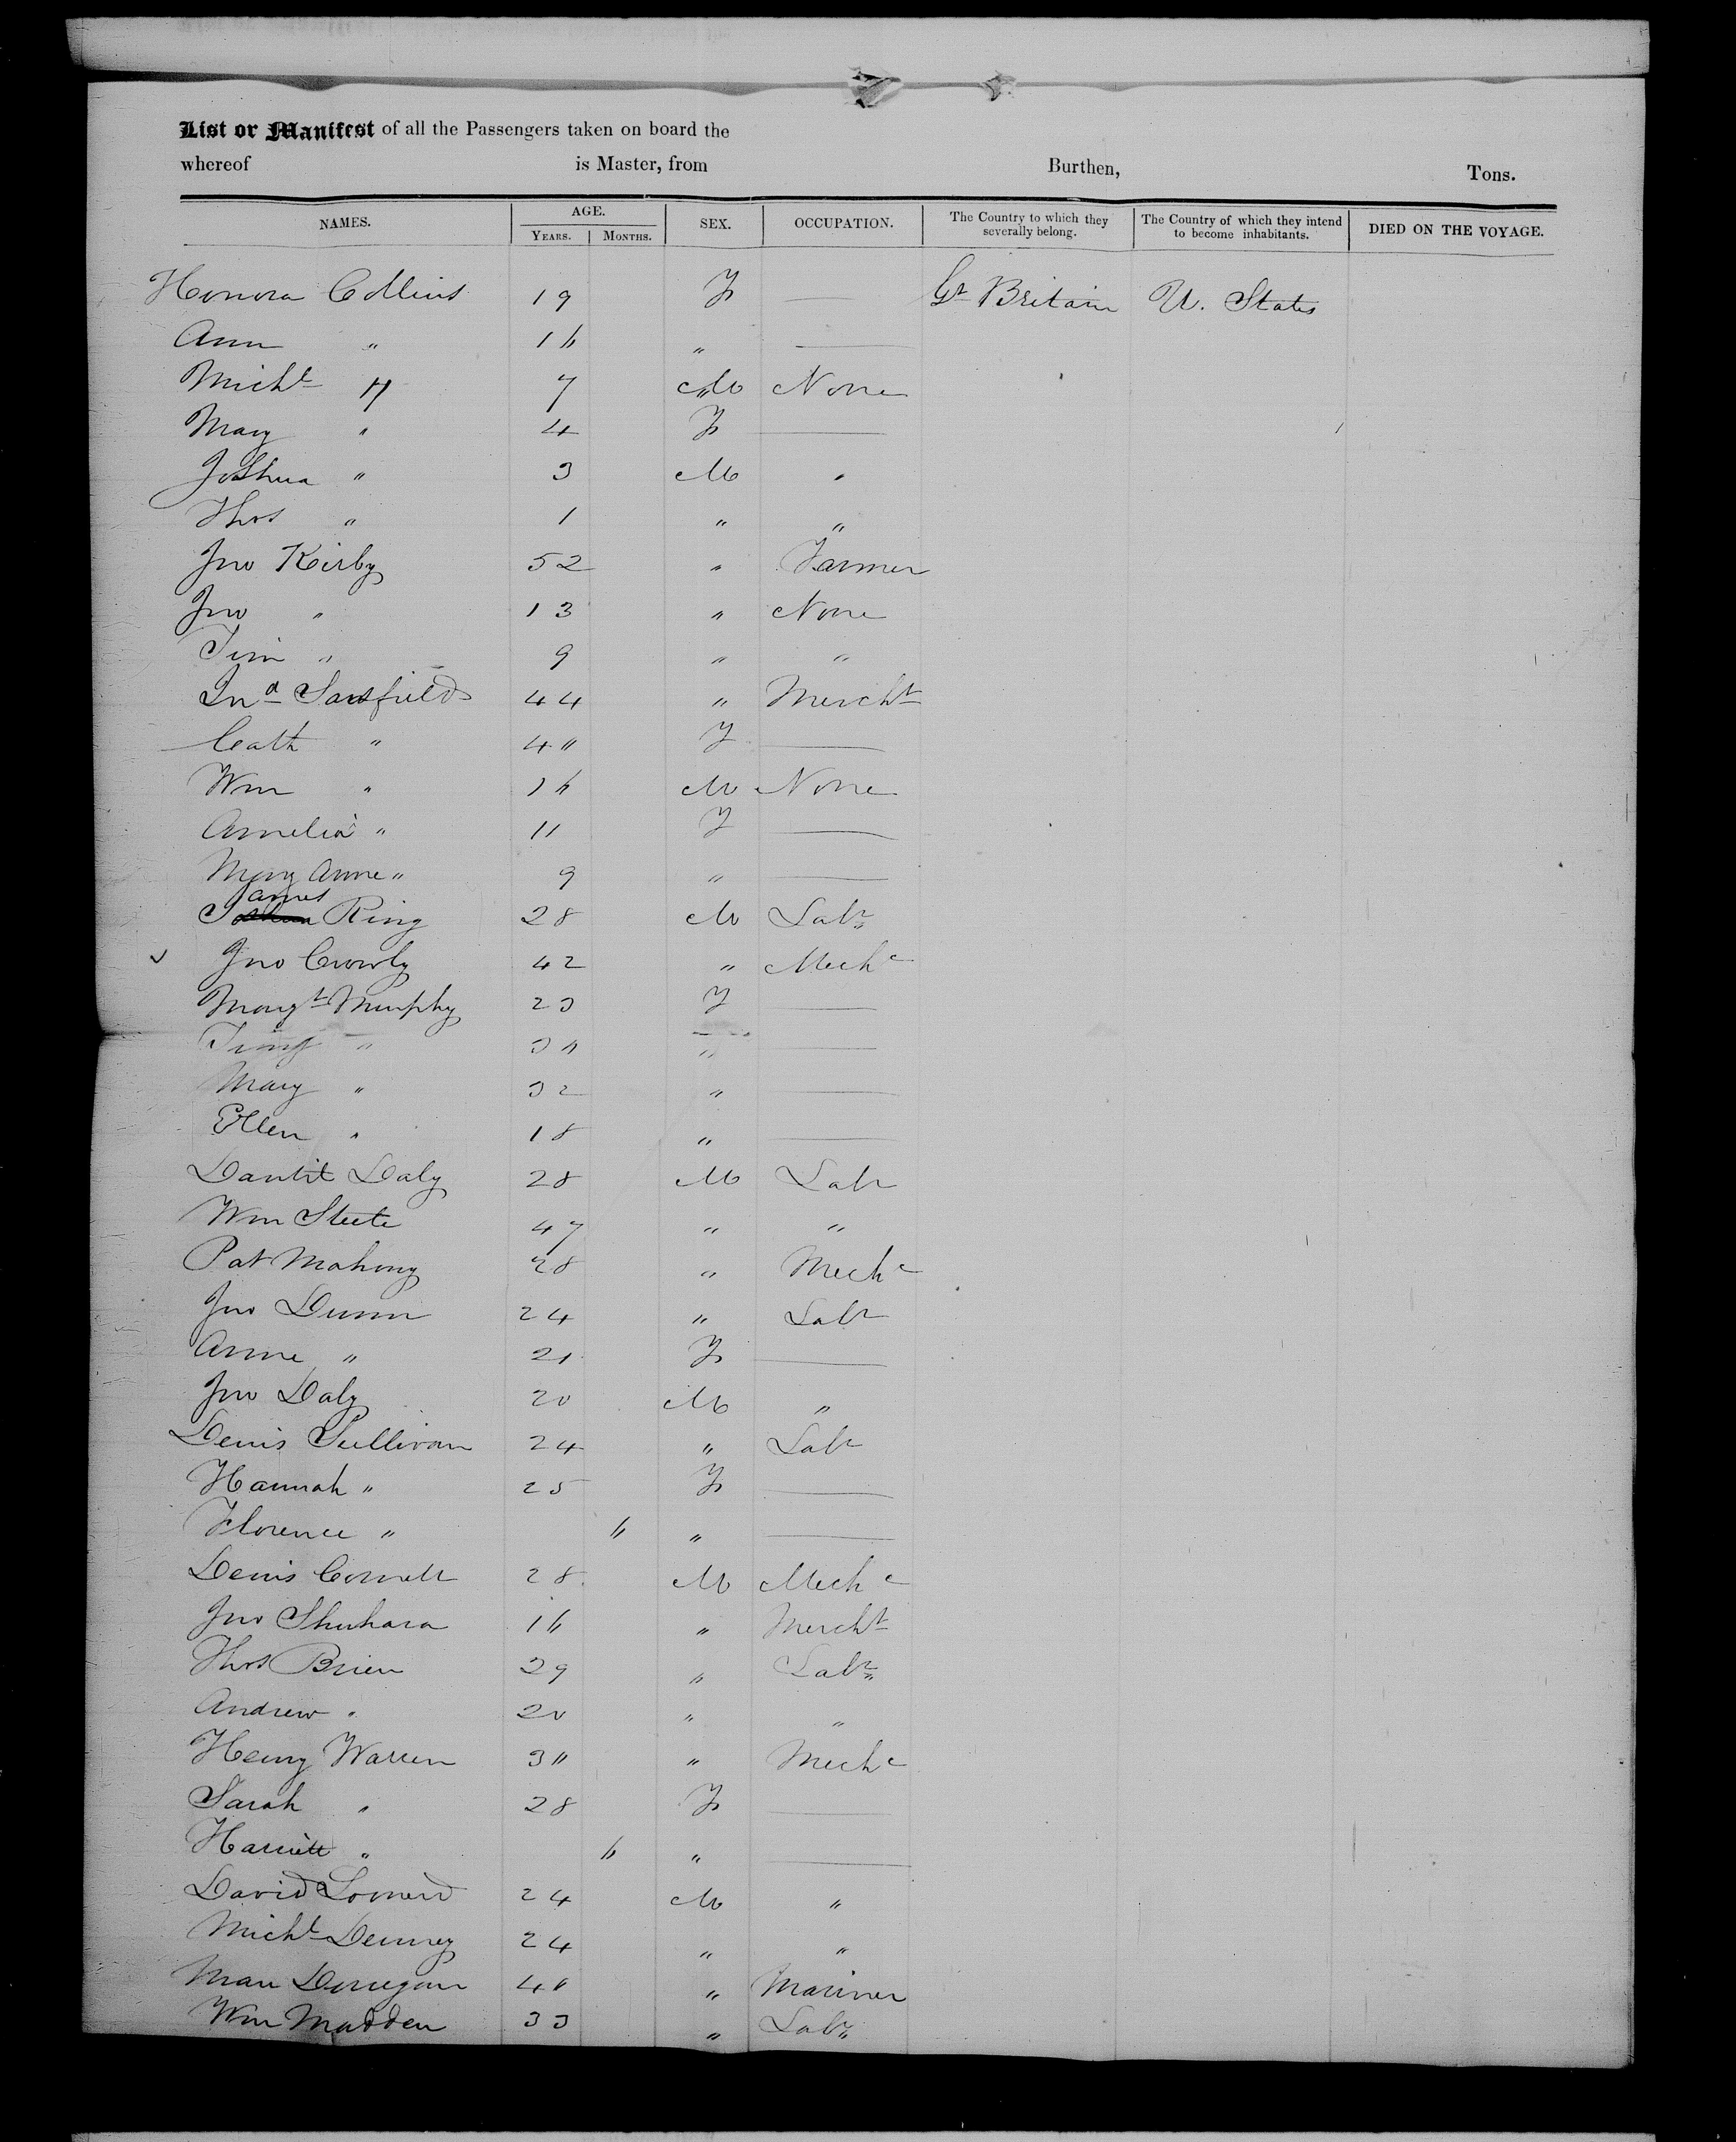 List or Manifest of all the Passengers taken on board the
whereof is Master, from Burthen, Tons.
NAMES. AGE. SEX. OCCUPATION. The Country to which they severally belong. The Country of which they intend to become inhabitants. DIED ON THE VOYAGE.
YEARS. MONTHS.
Honora Collins 19 F — Gt Britain U. States
Ann " 16 " —
Michl " 7 M None
Mary " 4 F —
Joshua " 3 M "
Thos " 1 " "
Jno Kirby 52 " Farmer
Jno " 13 " None
Tim " 9 " "
Sarsfield 44 " Mercht
Cath " 4" F —
Wm " 16 M None
Amelia " 11 F —
Mary Anne " 9 " —
James Ring 28 M Labr
Jno Crowly 42 " Mechc
Margt Murphy 23 F —
" 3" " —
Mary " 32 " —
Ellen " 18 " —
Daly 28 M Labr
Wm Steele 47 " "
Pat Mahony 28 " Mechc
Jno Dunn 24 " Labr
Anne " 21 F —
Jno Daly 20 M "
Denis Sullivan 24 " Labr
Hannah " 25 F —
Florence " 6 " —
Denis Connell 28 M Mechc
Jno Shuhara 16 " Mercht
Thos Brien 29 " Labr
Andrew " 20 " "
Henry Warren 3" " Mechc
Sarah " 28 F —
Harriett " 6 " —
David 24 M "
Michl Denney 24 " "
Donegan 4" " Mariner
Wm Madden 33 " Labr